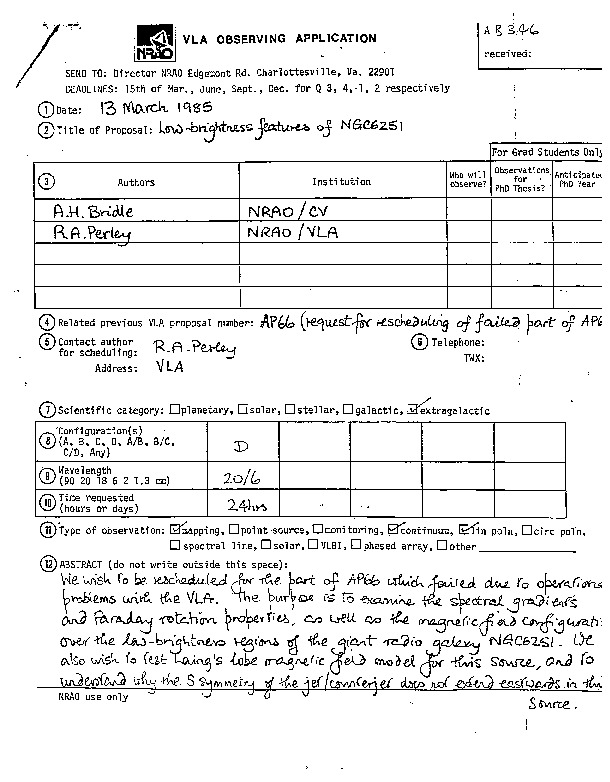 AB346
NRAO
VLA OBSERVING APPLICATION
received:
SEND TO: Director NRAO Edgemont Rd. Charlottesville, Va. 22901
DEADLINES: 15th of Mar., June, Sept., Dec. for Q 3, 4, 1, 2 respectively
① Date: 13 March 1985
② Title of Proposal: Low-brightness features of NGC6251
For Grad Students Only
③ Authors Institution Who will observe? Observations for PhD Thesis? Anticipated PhD Year
A.H. Bridle NRAO/CV
R.A. Perley NRAO/VLA
④ Related previous VLA proposal number: AP66 (request for rescheduling of failed part of AP6
⑤ Contact author for scheduling: R.A. Perley ⑥ Telephone:
Address: VLA TWX:
⑦ Scientific category: ☐planetary, ☐solar, ☐stellar, ☐galactic, ☑extragalactic
⑧ Configuration(s) (A, B, C, D, A/B, B/C, C/D, Any) D
⑨ Wavelength (90 20 18 6 2 1.3 cm) 20/6
⑩ Time requested (hours or days) 24hrs
⑪ Type of observation: ☑mapping, ☐point source, ☐monitoring, ☑continuum, ☑lin poln, ☐circ poln,
☐spectral line, ☐solar, ☐VLBI, ☐phased array, ☐other
⑫ ABSTRACT (do not write outside this space):
We wish to be rescheduled for the part of AP66 which failed due to operations
problems with the VLA. The purpose is to examine the spectral gradients
and Faraday rotation properties, as well as the magnetic field configurati
over the low-brightness regions of the giant radio galaxy NGC6251. We
also wish to test Laing's lobe magnetic field model for this source, and to
understand why the S symmetry of the jet/counterjet does not extend eastwards in this
Source.
NRAO use only